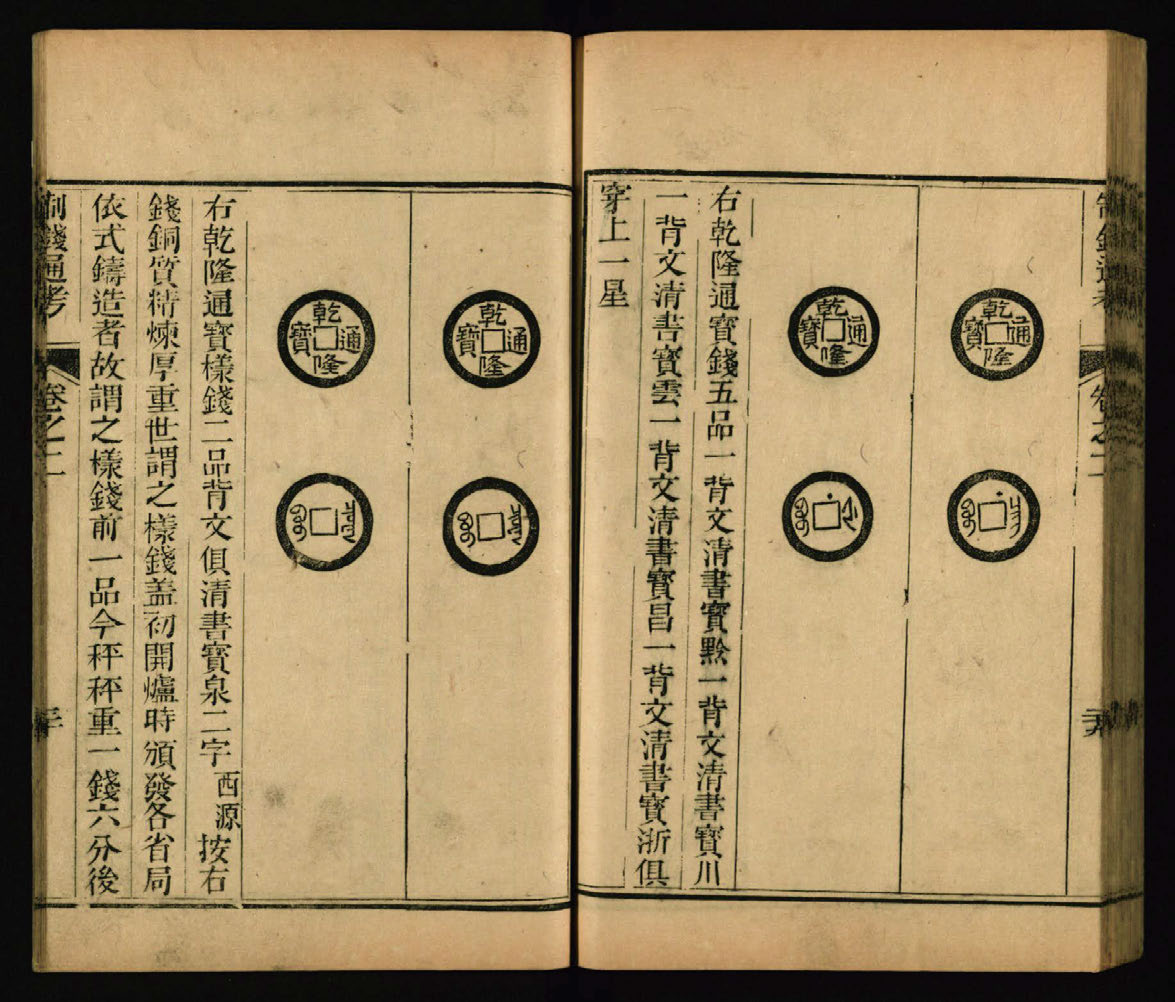 制錢通考
卷之二
乾隆通寶
乾隆通寶
右乾隆通寶錢五品一背文清書寶黔一背文清書寶川
一背文清書寶雲一背文清書寶昌一背文清書寶浙俱
穿上一星
乾隆通寶
乾隆通寶
右乾隆通寶樣錢二品背文俱清書寶泉二字西源按右
錢銅質精煉厚重世謂之樣錢盖初開爐時頒發各省局
依式鑄造者故謂之樣錢前一品今秤秤重一錢六分後
制錢通考
卷之二